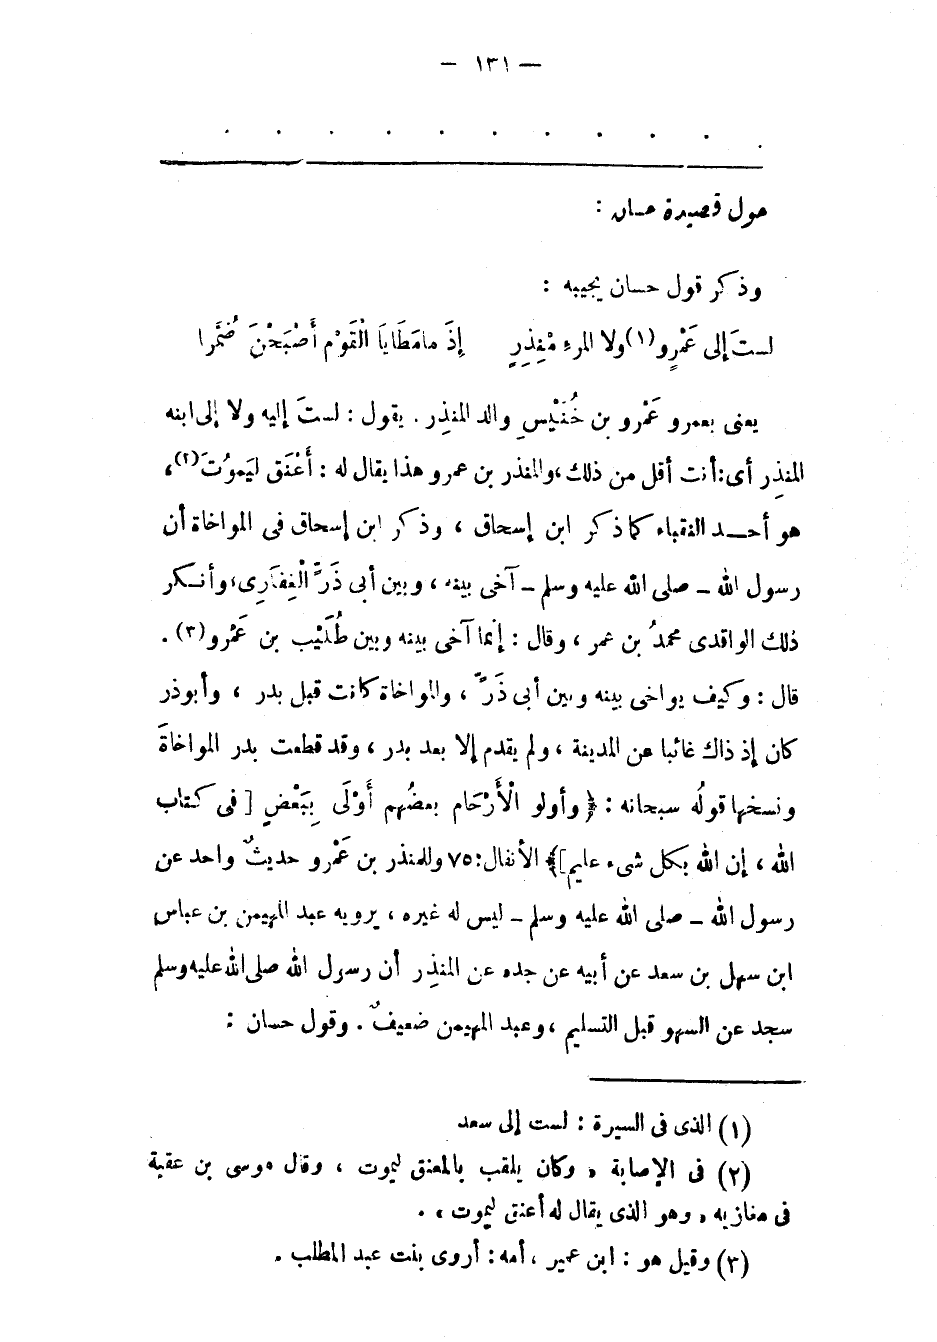 — ١٣١ —
. . . . . . . . . . .
حول قصيدة حسان :
وذكر قول حسان يجيبه :
لستَ إلى عَمْرٍو (١) ولا المرءِ مُنْذِرٍ إذَ ما مَطَايَا الْقَوْمِ أَصْبَحْنَ ضُمَّرا
يعنى بعمرو عَمْرو بن خُنَيْسٍ والد المنذِر . يقول : لستَ إليه ولا إلى ابنه
المنذِر أى : أنت أقل من ذلك ، والمنذر بن عمرو هذا يقال له : أَعْنَق لِيَموُتَ (٢) ،
هو أحــد النقباء كما ذكر ابن إسحاق ، وذكر ابن إسحاق فى المواخاة أن
رسول الله ــ صلى الله عليه وسلم ــ آخى بينه ، وبين أبى ذَرٍّ الْغِفَارِى ، وأنـكر
ذلك الواقدى محمدُ بن عمر ، وقال : إنما آخى بينه وبين طُلَيْب بن عَمْرو (٣) .
قال : وكيف يواخى بينه وبين أبى ذَرٍّ ، والمواخاة كانت قبل بدر ، وأبوذر
كان إذ ذاك غائبا عن المدينة ، ولم يقدم إلا بعد بدر ، وقد قطعت بدر المواخاةَ
ونسخها قولُه سبحانه : ﴿ وأولو الْأَرْحَام بعضُهم أَوْلَى بِبَعْضٍ [ فى كتاب
الله ، إن الله بكل شىء عليم ] ﴾ الأنفال : ٧٥ وللمنذر بن عَمْرو حديثٌ واحد عن
رسول الله ــ صلى الله عليه وسلم ــ ليس له غيره ، يرويه عبد المهيمن بن عباس
ابن سهل بن سعد عن أبيه عن جده عن المنذِر أن رسول الله صلى الله عليه وسلم
سجد عن السهو قبل التسليم ، وعبد المهيمن ضعيفٌ . وقول حسان :
(١) الذى فى السيرة : لست إلى سعد
(٢) فى الإصابة « وكان يلقب بالمعنق ليموت ، وقال موسى بن عقبة
فى مغازيه « وهو الذى يقال له أعنق ليموت » .
(٣) وقيل هو : ابن عمير ، أمه : أروى بنت عبد المطلب .